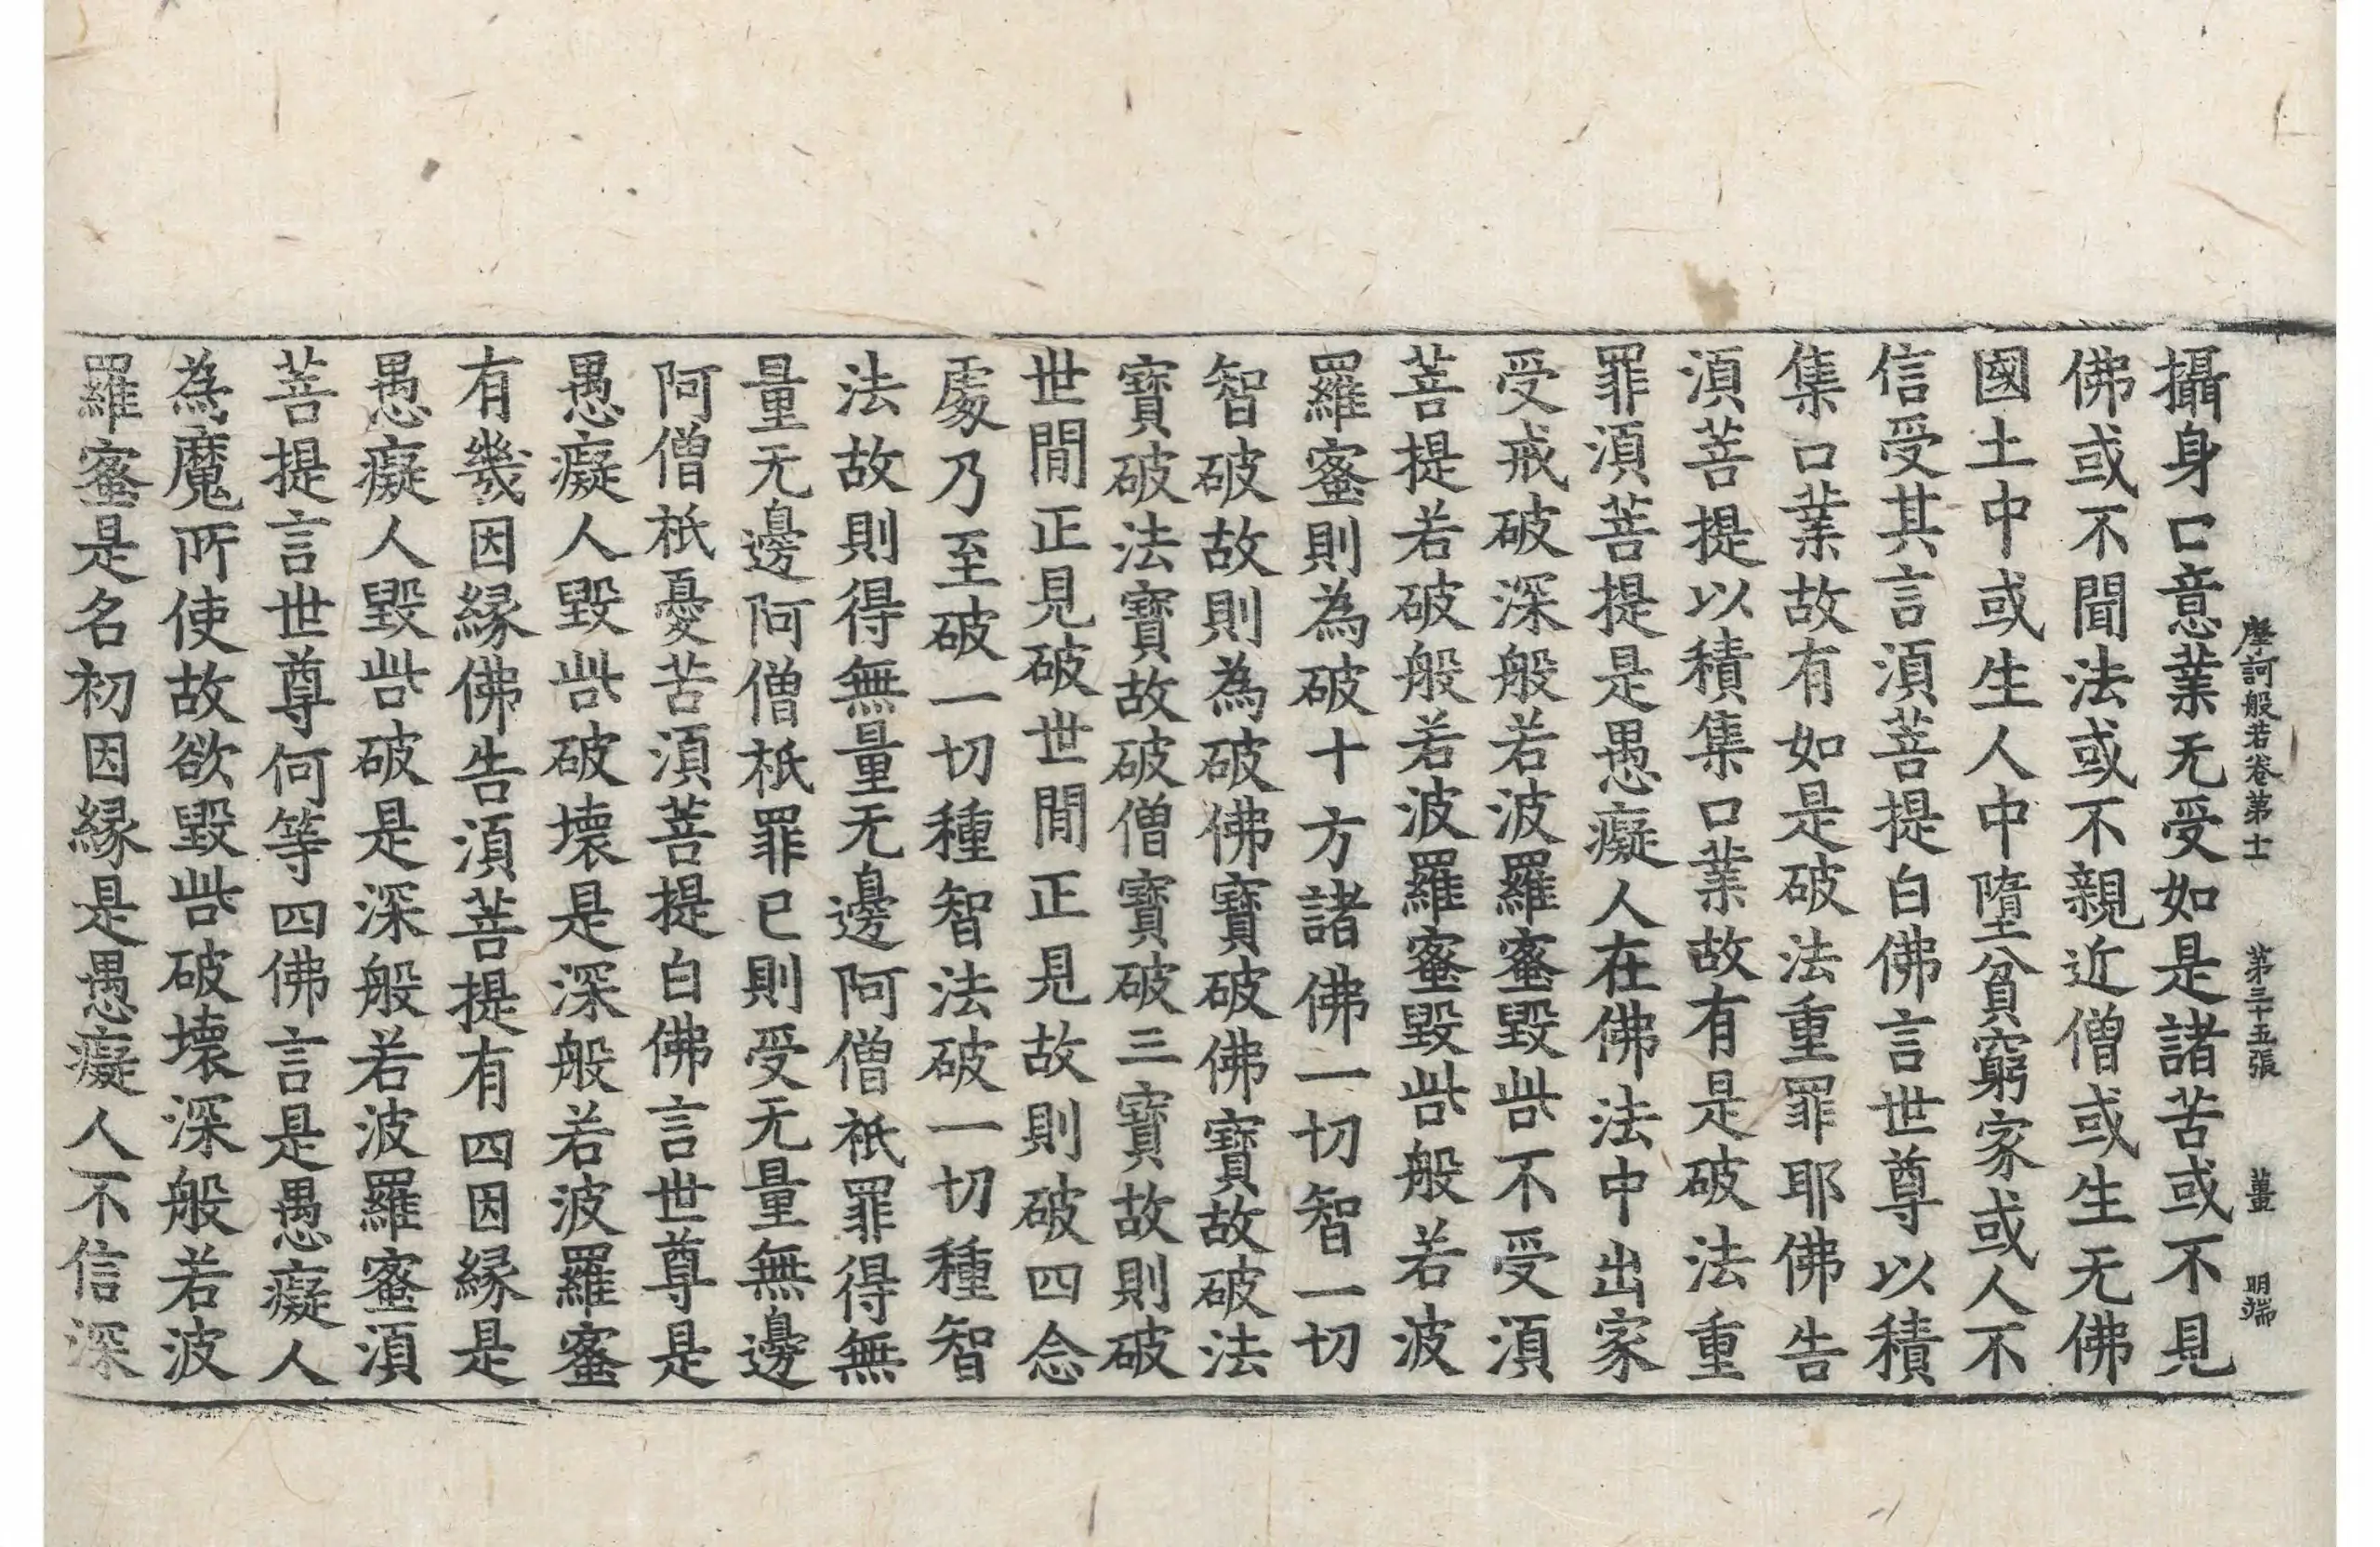 摩訶般若卷第十一 第三十五張 薑 明端
攝身口意業无受如是諸苦或不見
佛或不聞法或不親近僧或生无佛
國土中或生人中墮貧窮家或人不
信受其言湏菩提白佛言世尊以積
集口業故有如是破法重罪耶佛告
湏菩提以積集口業故有是破法重
罪湏菩提是愚癡人在佛法中出家
受戒破深般若波羅蜜毀呰不受湏
菩提若破般若波羅蜜毀呰般若波
羅蜜則為破十方諸佛一切智一切
智破故則為破佛寶破佛寶故破法
寶破法寶故破僧寶破三寶故則破
世閒正見破世閒正見故則破四念
處乃至破一切種智法破一切種智
法故則得無量无邊阿僧祇罪得無
量无邊阿僧祇罪已則受无量無邊
阿僧祇憂苦湏菩提白佛言世尊是
愚癡人毀呰破壞是深般若波羅蜜
有幾因緣佛告湏菩提有四因緣是
愚癡人毀呰破是深般若波羅蜜湏
菩提言世尊何等四佛言是愚癡人
為魔所使故欲毀呰破壞深般若波
羅蜜是名初因緣是愚癡人不信深